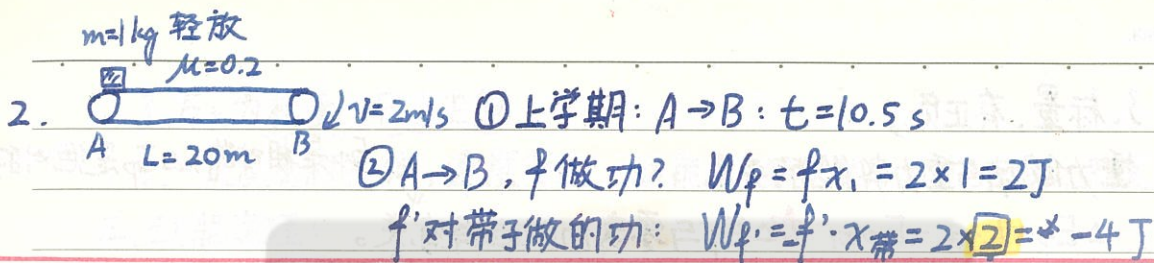 m=1kg 轻放
μ=0.2
2. v=2m/s ①上学期: A→B: t=10.5s
A L=20m B
②A→B, f做功? Wf=fx₁=2×1=2J
f'对带子做的功: Wf'=-f'·x带=2×2=-4J